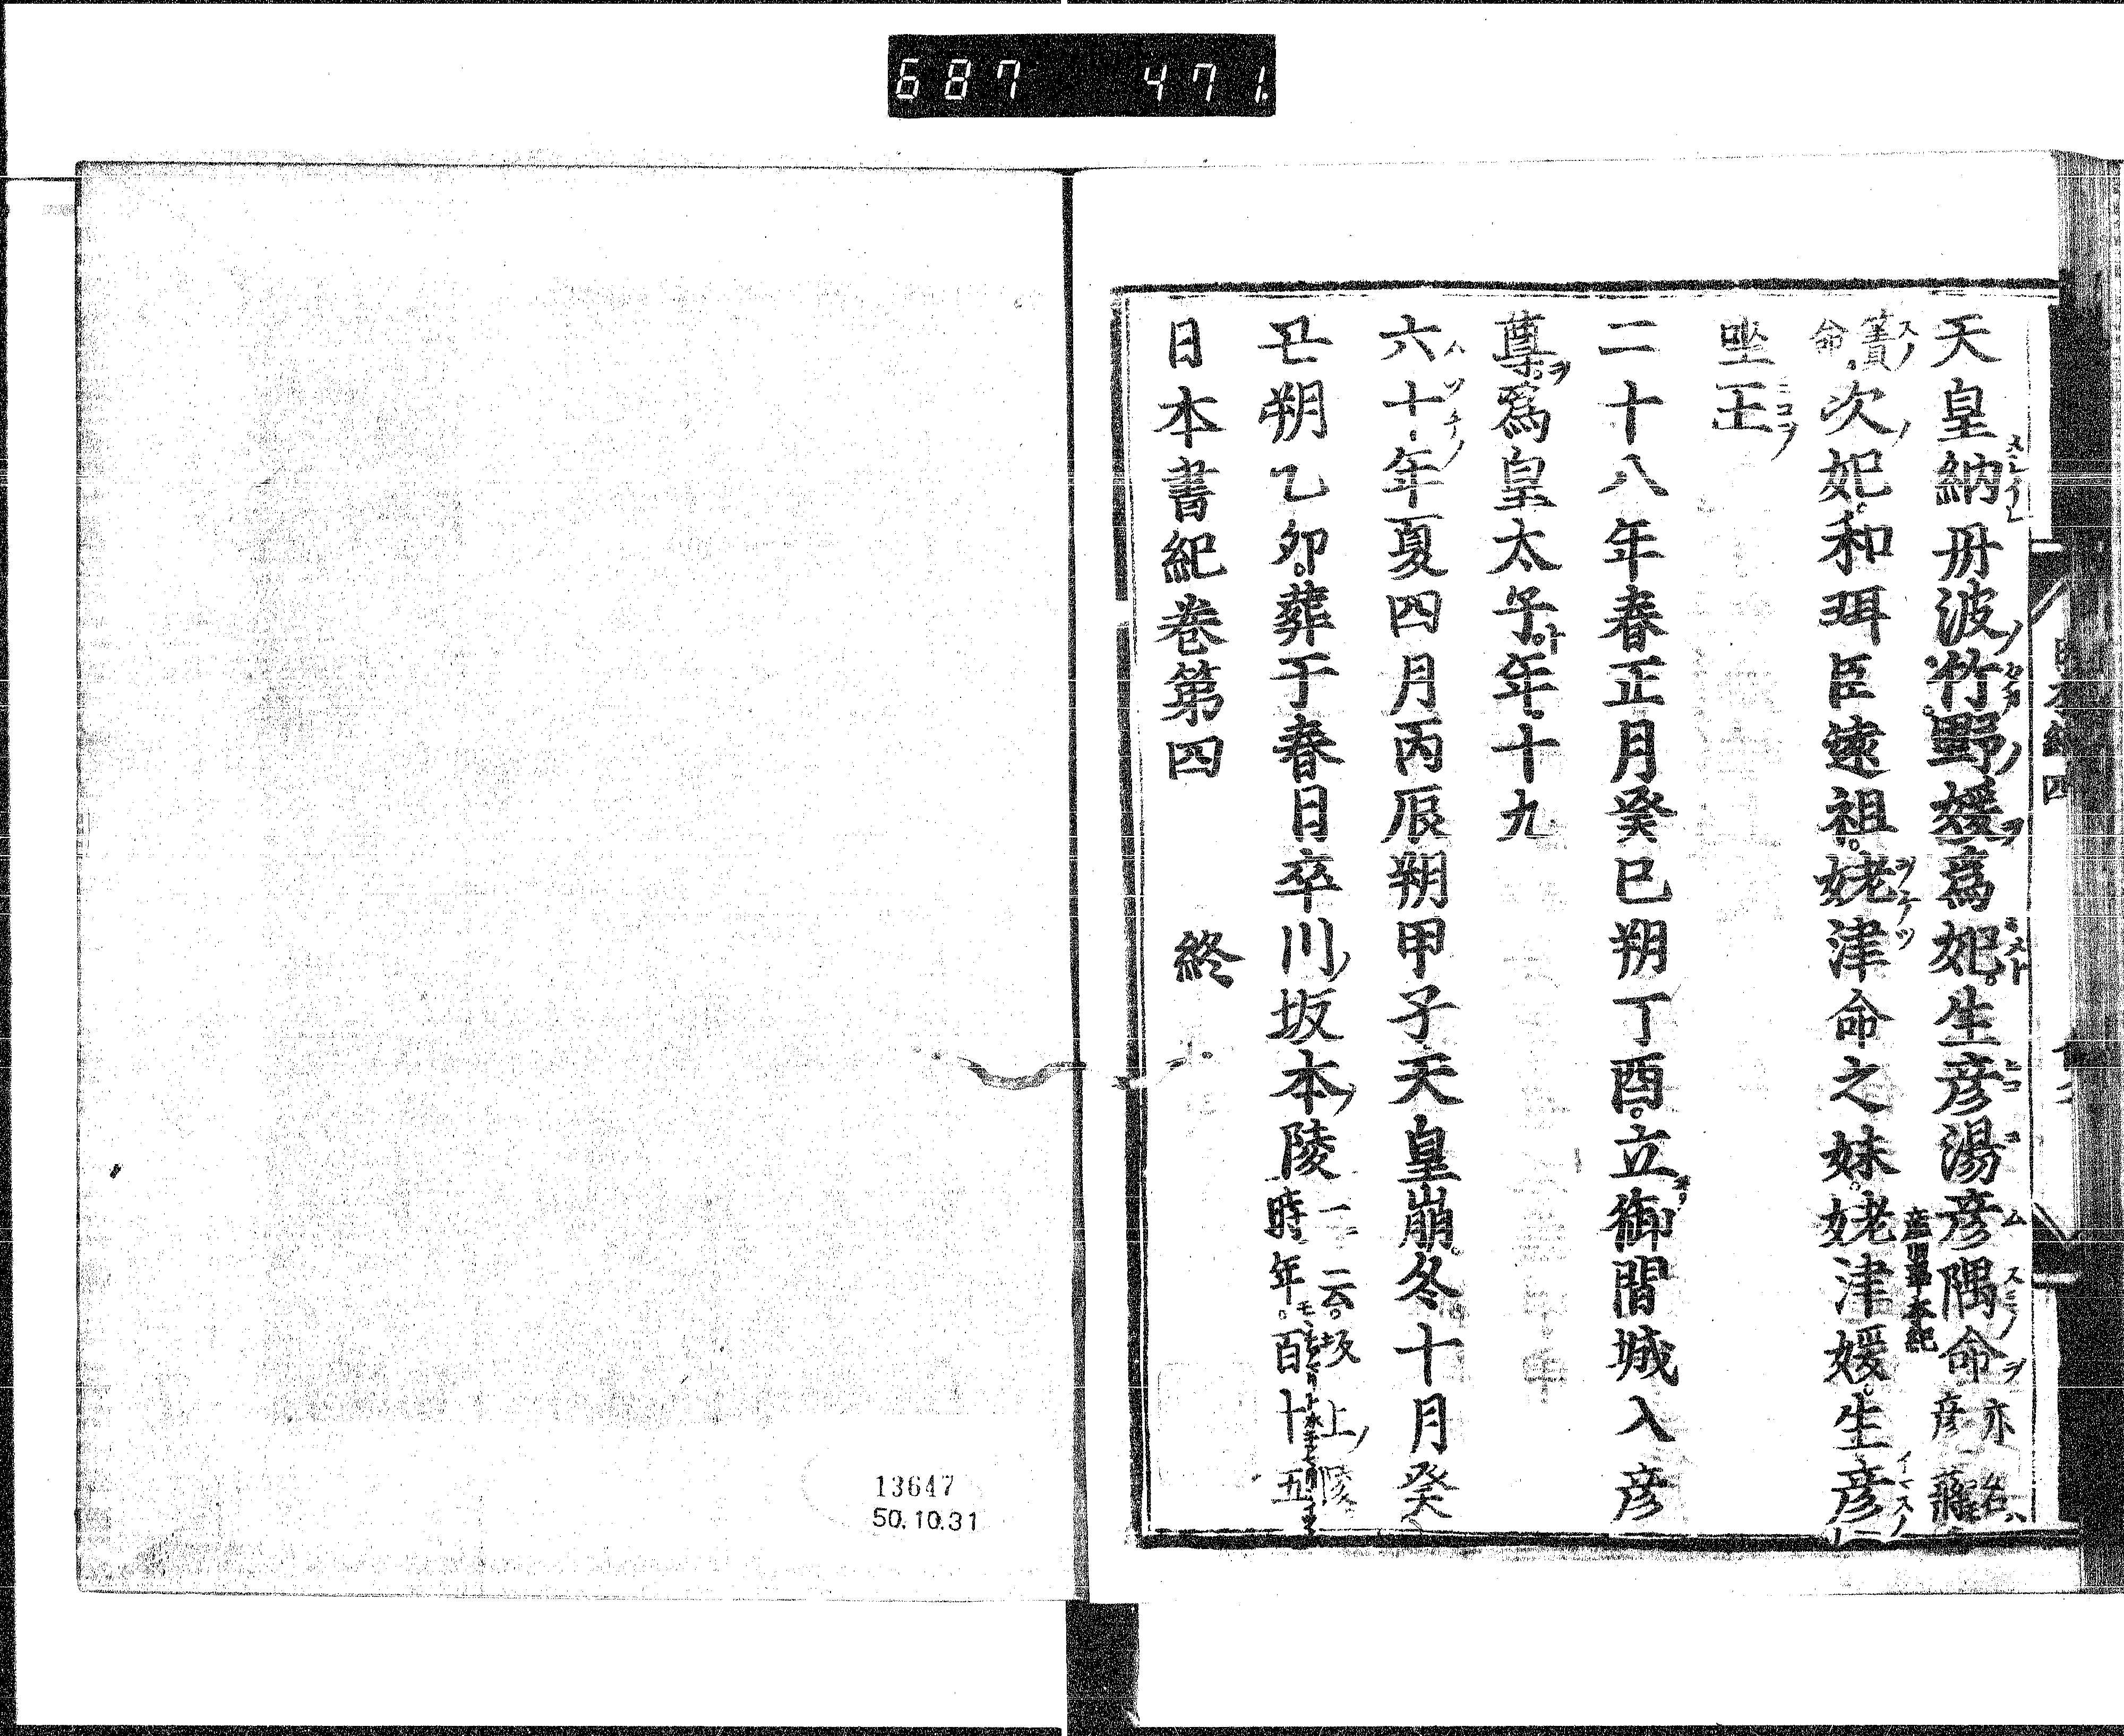 687 471.
天皇納丹波竹野媛爲妃生彦湯彦隅命亦名彦蔣
簀命次妃和珥臣遠祖姥津命之妹姥津媛生彦
坐王
二十八年春正月癸巳朔丁酉立御間城入彦
尊爲皇太子年十九
六十年夏四月丙辰朔甲子天皇崩冬十月癸
丑朔乙卯葬于春日率川坂本陵一云坂上陵時年百十五
日本書紀卷第四 終
13647
50.10.31